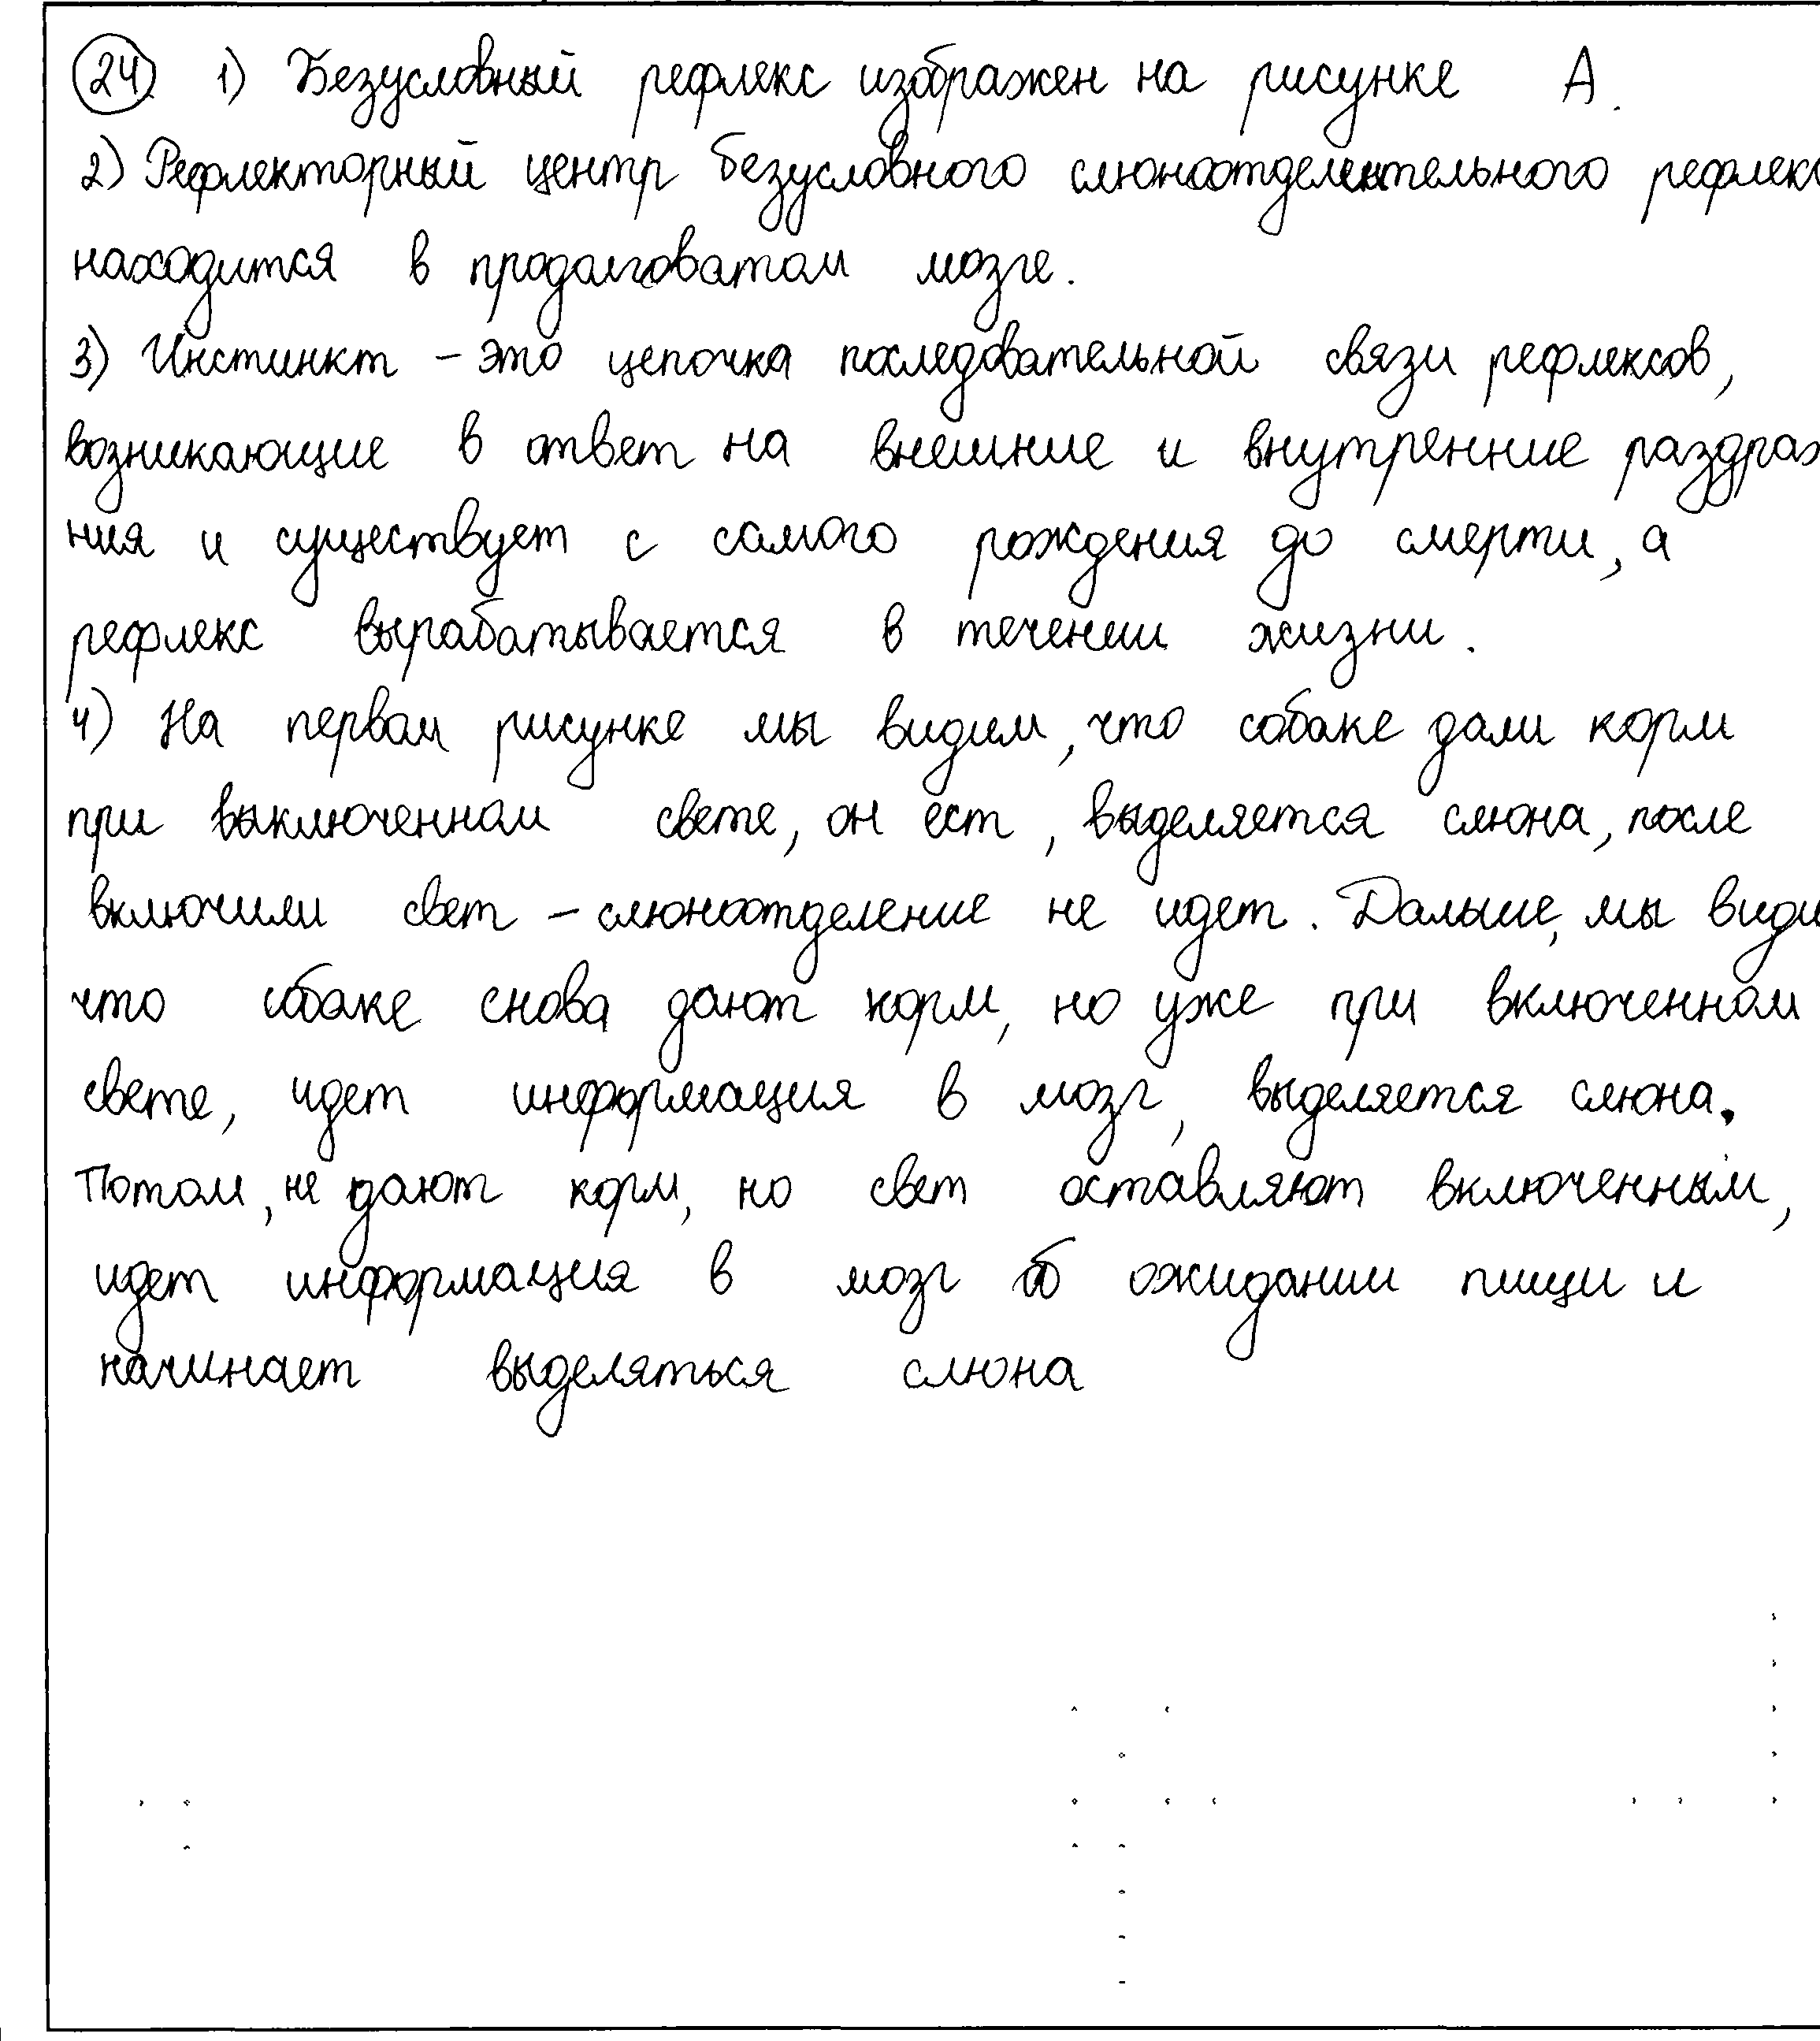 24 1) Безусловный рефлекс изображен на рисунке А.
2) Рефлекторный центр безусловного слюноотделительного рефлекс
находится в продолговатом мозге.
3) Инстинкт – это цепочка последовательной связи рефлексов,
возникающие в ответ на внешние и внутренние раздраж
ния и существует с самого рождения до смерти, а
рефлекс вырабатывается в течении жизни.
4) На первом рисунке мы видим, что собаке дали корм
при выключенном свете, он ест, выделяется слюна, после
включили свет – слюноотделение не идет. Дальше, мы види
что собаке снова дают корм, но уже при включенном
свете, идет информация в мозг, выделяется слюна.
Потом, не дают корм, но свет оставляют включенным,
идет информация в мозг об ожидании пищи и
начинает выделяться слюна